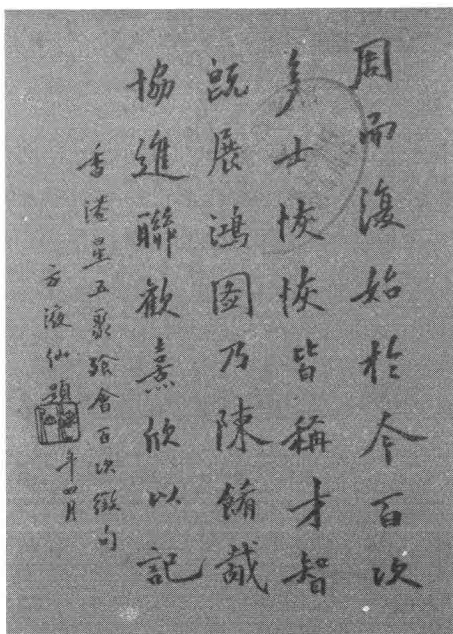 周而復始於今百次
多士恢恢皆稱才智
既展鴻图乃陳餚胾
協進聯歡熹欣以記
香港星五聚餐會百次徵句
方液仙題
年四月